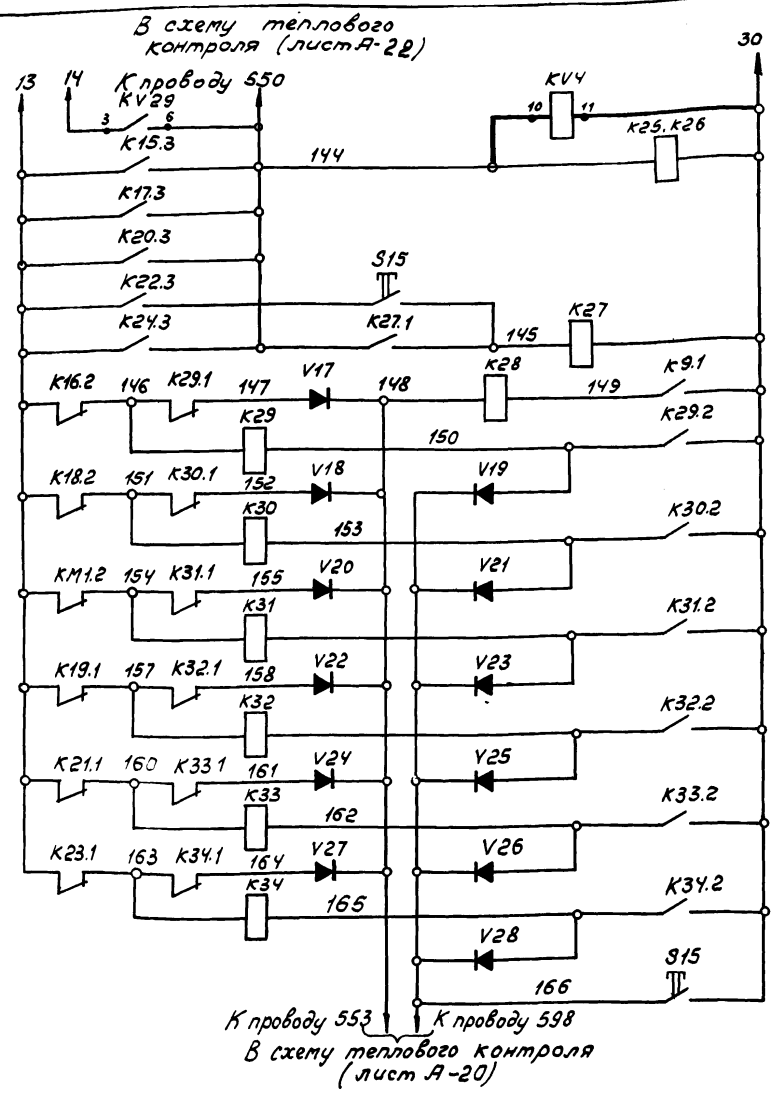 В схему теплового
контроля (лист А-22)
13 14 К проводу 550 30
KV29 KV4
3 6 10 11
К15.3 144 К25, К26
К17.3
К20.3
К22.3 S15
К24.3 К27.1 145 К27
К16.2 146 К29.1 147 V17 148 К28 149 К9.1
К29 150 К29.2
К18.2 151 К30.1 152 V18 V19
К30 153 К30.2
КМ1.2 154 К31.1 155 V20 V21
К31 К31.2
К19.1 157 К32.1 158 V22 V23
К32 К32.2
К21.1 160 К33 1 161 V24 V25
К33 162 К33.2
К23.1 163 К34.1 164 V27 V26
К34 165 К34.2
V28 S15
166
К проводу 553 К проводу 598
В схему теплового контроля
(лист А-20)